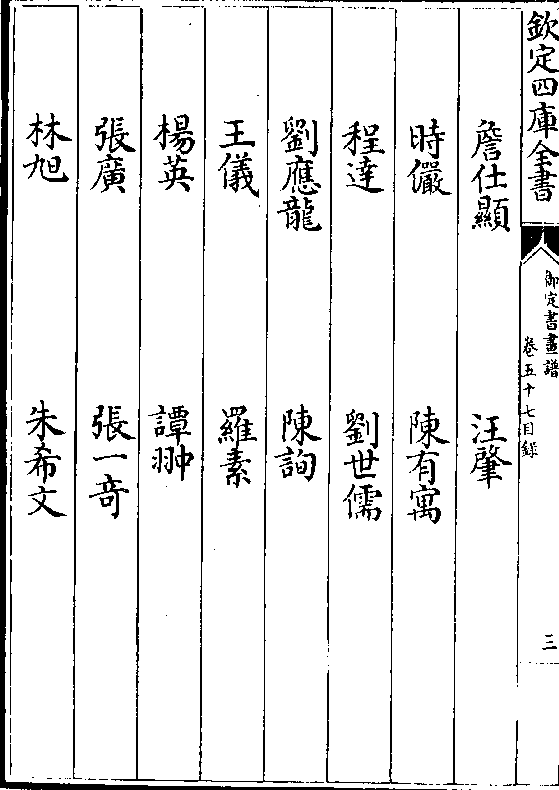 欽定四庫全書
御定書畫譜
卷五十七目錄
三
詹仕顯 汪肇
時儼 陳有寓
程達 劉世儒
劉應龍 陳詢
王儀 羅素
楊英 譚翀
張廣 張一奇
林旭 朱希文